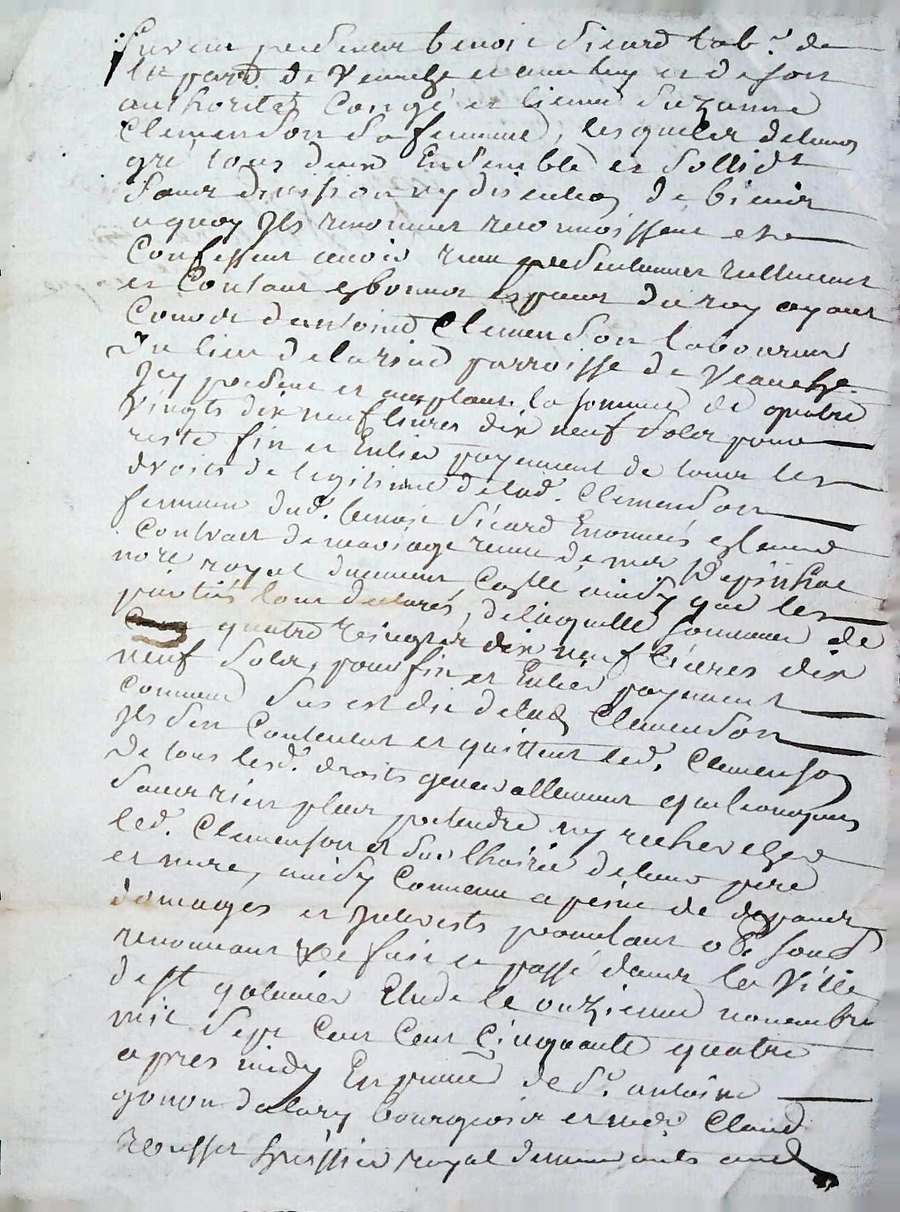 furent presents benoit Sicard lab.r de
la parr. de Veauche et aveu luy et de son
authorité Congé et licence Suzanne
Clemenson Sa femme, lesquels de leurs
gré tous deux Ensemble et Sollidt
Sans division ny discution de biens
a quoy Ils renoncent reconnoissent et
Confessent avoir reçu presentement réellement
et Contant es bonnes Especes du roy ayant
Cours d'antoine Clemenson laboureur
du lieu de la parroisse de Veauche
Icy present et acceptant la somme de quatre
Vingts dix neuf livres dix neuf Sols pour
reste fin et Entier payement de tous les
droits de legitime de lad. Clemenson
femme dud. benoit Sicard Enoncés
Contrat de mariage reçu de me
no.re royal ainsy que les
parties l'ont declaré, de laquelle somme de
quatre Vingts dix neuf livres dix
neuf Sols, pour fin et Entier payement
comme Sus est dit de lad Clemenson
Ils s'en Contentent et quittent led. Clemenson
De tous lesd. droits generallement quelconques
Sans rien plus pretendre ny rechercher
led. Clemenson et Sur l'hoirie de leurs pere
et mere, ainsy Convenu a peine de depens
domages et Interests promettant obe Soub
renonceant &e fait et passé dans la Ville
de st galmier Etude le onzieme novembre
mil Sept Cent Cent Cinquante quatre
apres midy En presence de Sr. antoine
gonon bourgeois et me Claude
huissier royal demeurants aud